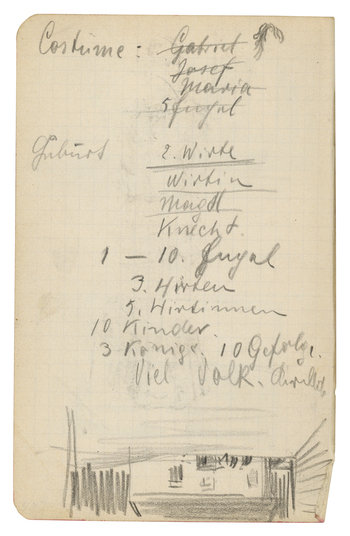 Costüme: Gabriel
Josef
Maria
5 Engel
Geburt 2. Wirte
Wirtin
Magd
Knecht.
1 — 10. Engel
3. Hirten
5. Hirtinnen
10 Kinder.
3 Könige. 10 Gefolge.
Viel Volk.